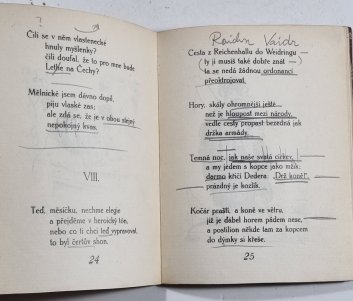 Čili se v něm vlastenecké
hnuly myšlenky?
čili doufal, že to pro mne bude
Letke na Čechy?
Mělnické jsem dávno dopil,
piju vlaské zas;
ale zdá se, že je v obou stejný
nepokojný kvas.
VIII.
Teď, měsíčku, nechme elegie
a přejděme v heroický tón,
nebo co ti chci teď vypravovat,
to byl čertův shon.
24
Cesta z Reichenhallu do Weidringu
(ty ji musíš také dobře znát —)
ta se nedá žádnou ordonancí
přeoktrojovat.
Hory, skály ohromnější ještě,
než je hloupost mezi národy,
vedle cesty propast bezedná jak
držka armády.
Temná noc, jak naše svatá církev,
a my jedem s kopce jako mžik;
darmo křičí Dedera: „Drž koně!“
prázdný je kozlík.
Kočár praští, a koně ve větru,
již je ďábel horem pádem nese,
a postilion někde tam za kopcem
do dýmky si křeše.
25